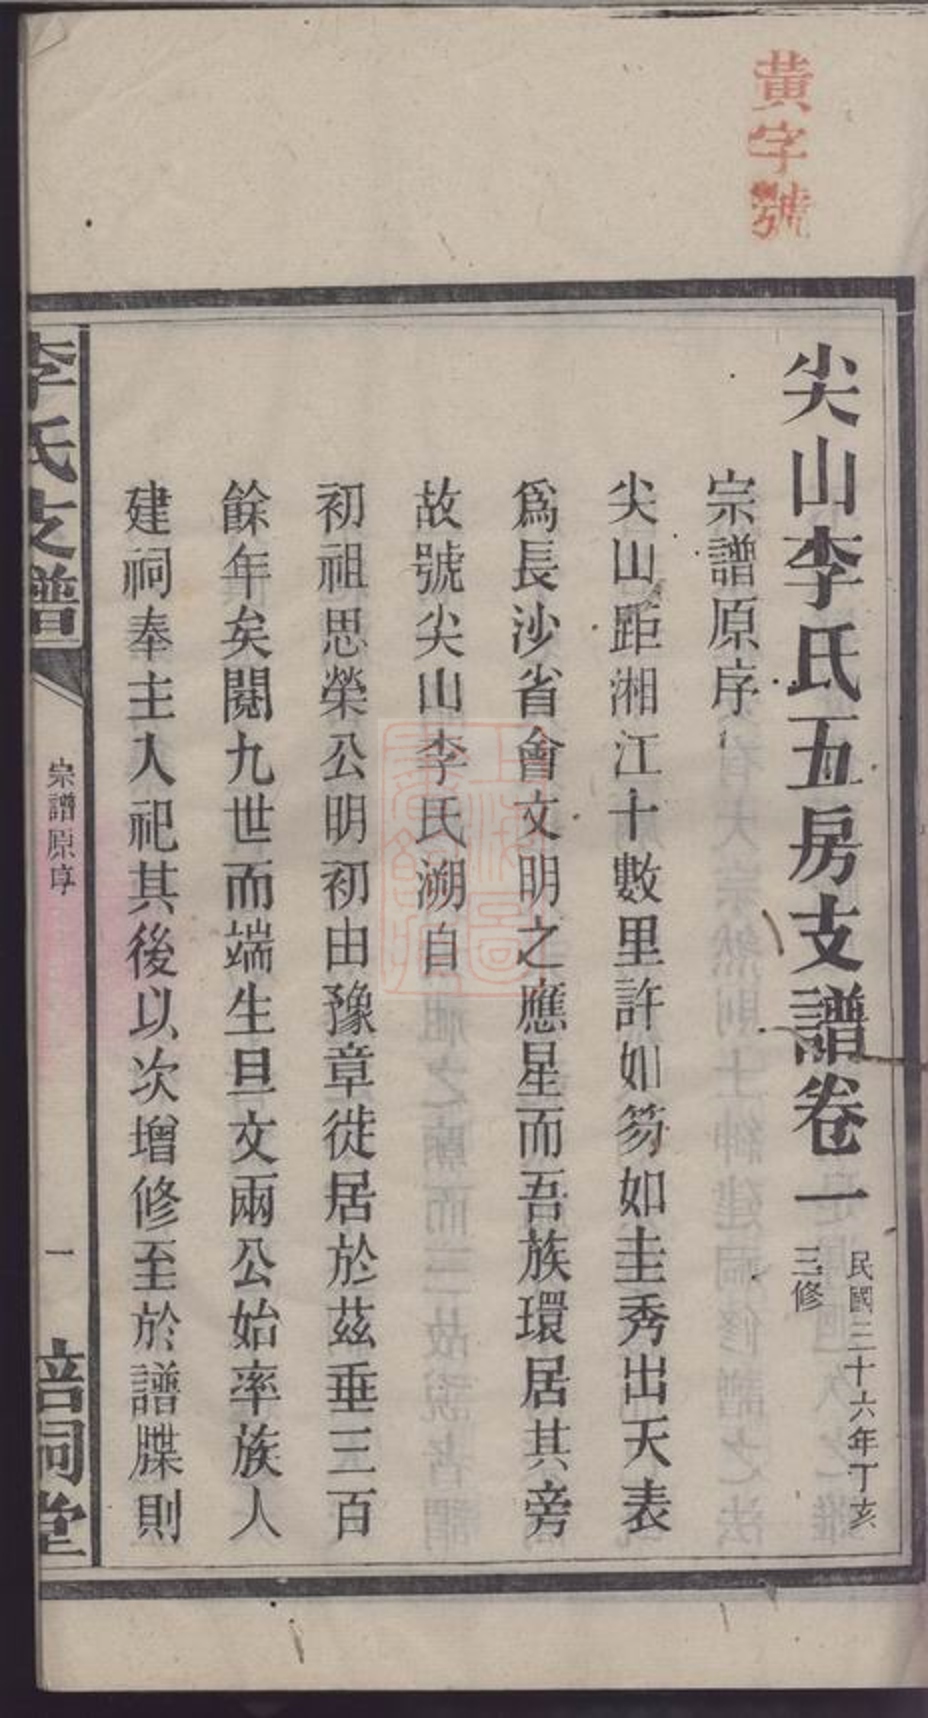 黃字號
尖山李氏五房支譜卷一
民國三十六年丁亥
三修
宗譜原序
尖山距湘江十數里許如笏如圭秀出天表
爲長沙省會文明之應星而吾族環居其旁
故號尖山李氏溯自
初祖思榮公明初由豫章徙居於茲垂三百
餘年矣閱九世而端生旦文兩公始率族人
建祠奉主入祀其後以次增修至於譜牒則
李氏支譜
宗譜原序
一
培祠堂